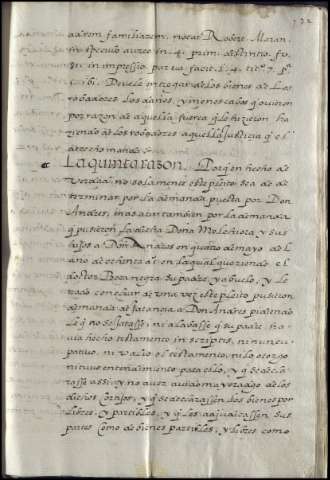 732
aarom familiarem. notat Robert. Maran.
in speculo aureo in. 4. prim. distintio. fo.
gi. in impressio. parua facit. l. 4. titº. 7. pª.
ibi. Deuele entregar de los bienes de los
robadores los daños, y menos cauos q̃ ouieron
por razon de aquella fuerça q̃ le hizieron ha
ziendo a los robadores aquella justicia q̃ el
derecho manda &
La quinta razon. Porq̃ en hecho de
verdad no solamente este pleito sea de de
terminar por la demanda puesta por Don
Andres, mas aun tambien por la demanda
q̃ pusieron la dicha Doña Melchiora y sus
hijos a Don Andres en quatro de mayo del
año de ochenta en la qual queriendo el
doctor Bocanegra su padre, y abuelo, y le
trado concluir de vna vez este pleito pusieron
demanda de jatancia a Don Andres pidiendo
le q̃ no se jatasse, ni alabasse q̃ su padre ha
uia hecho testamento in scriptis, ni nuncu
patiuo, ni valio el testamento, ni lo otorgo
ni tuuo entendimiento para ello, y q̃ se decla
rasse assi, y no auer auido mayorazgo de los
dichos Cortijos, y q̃ se declarassen los bienes por
libres, y partibles, y q̃ les adjudicassen sus
partes como de bienes partibles, y libres como